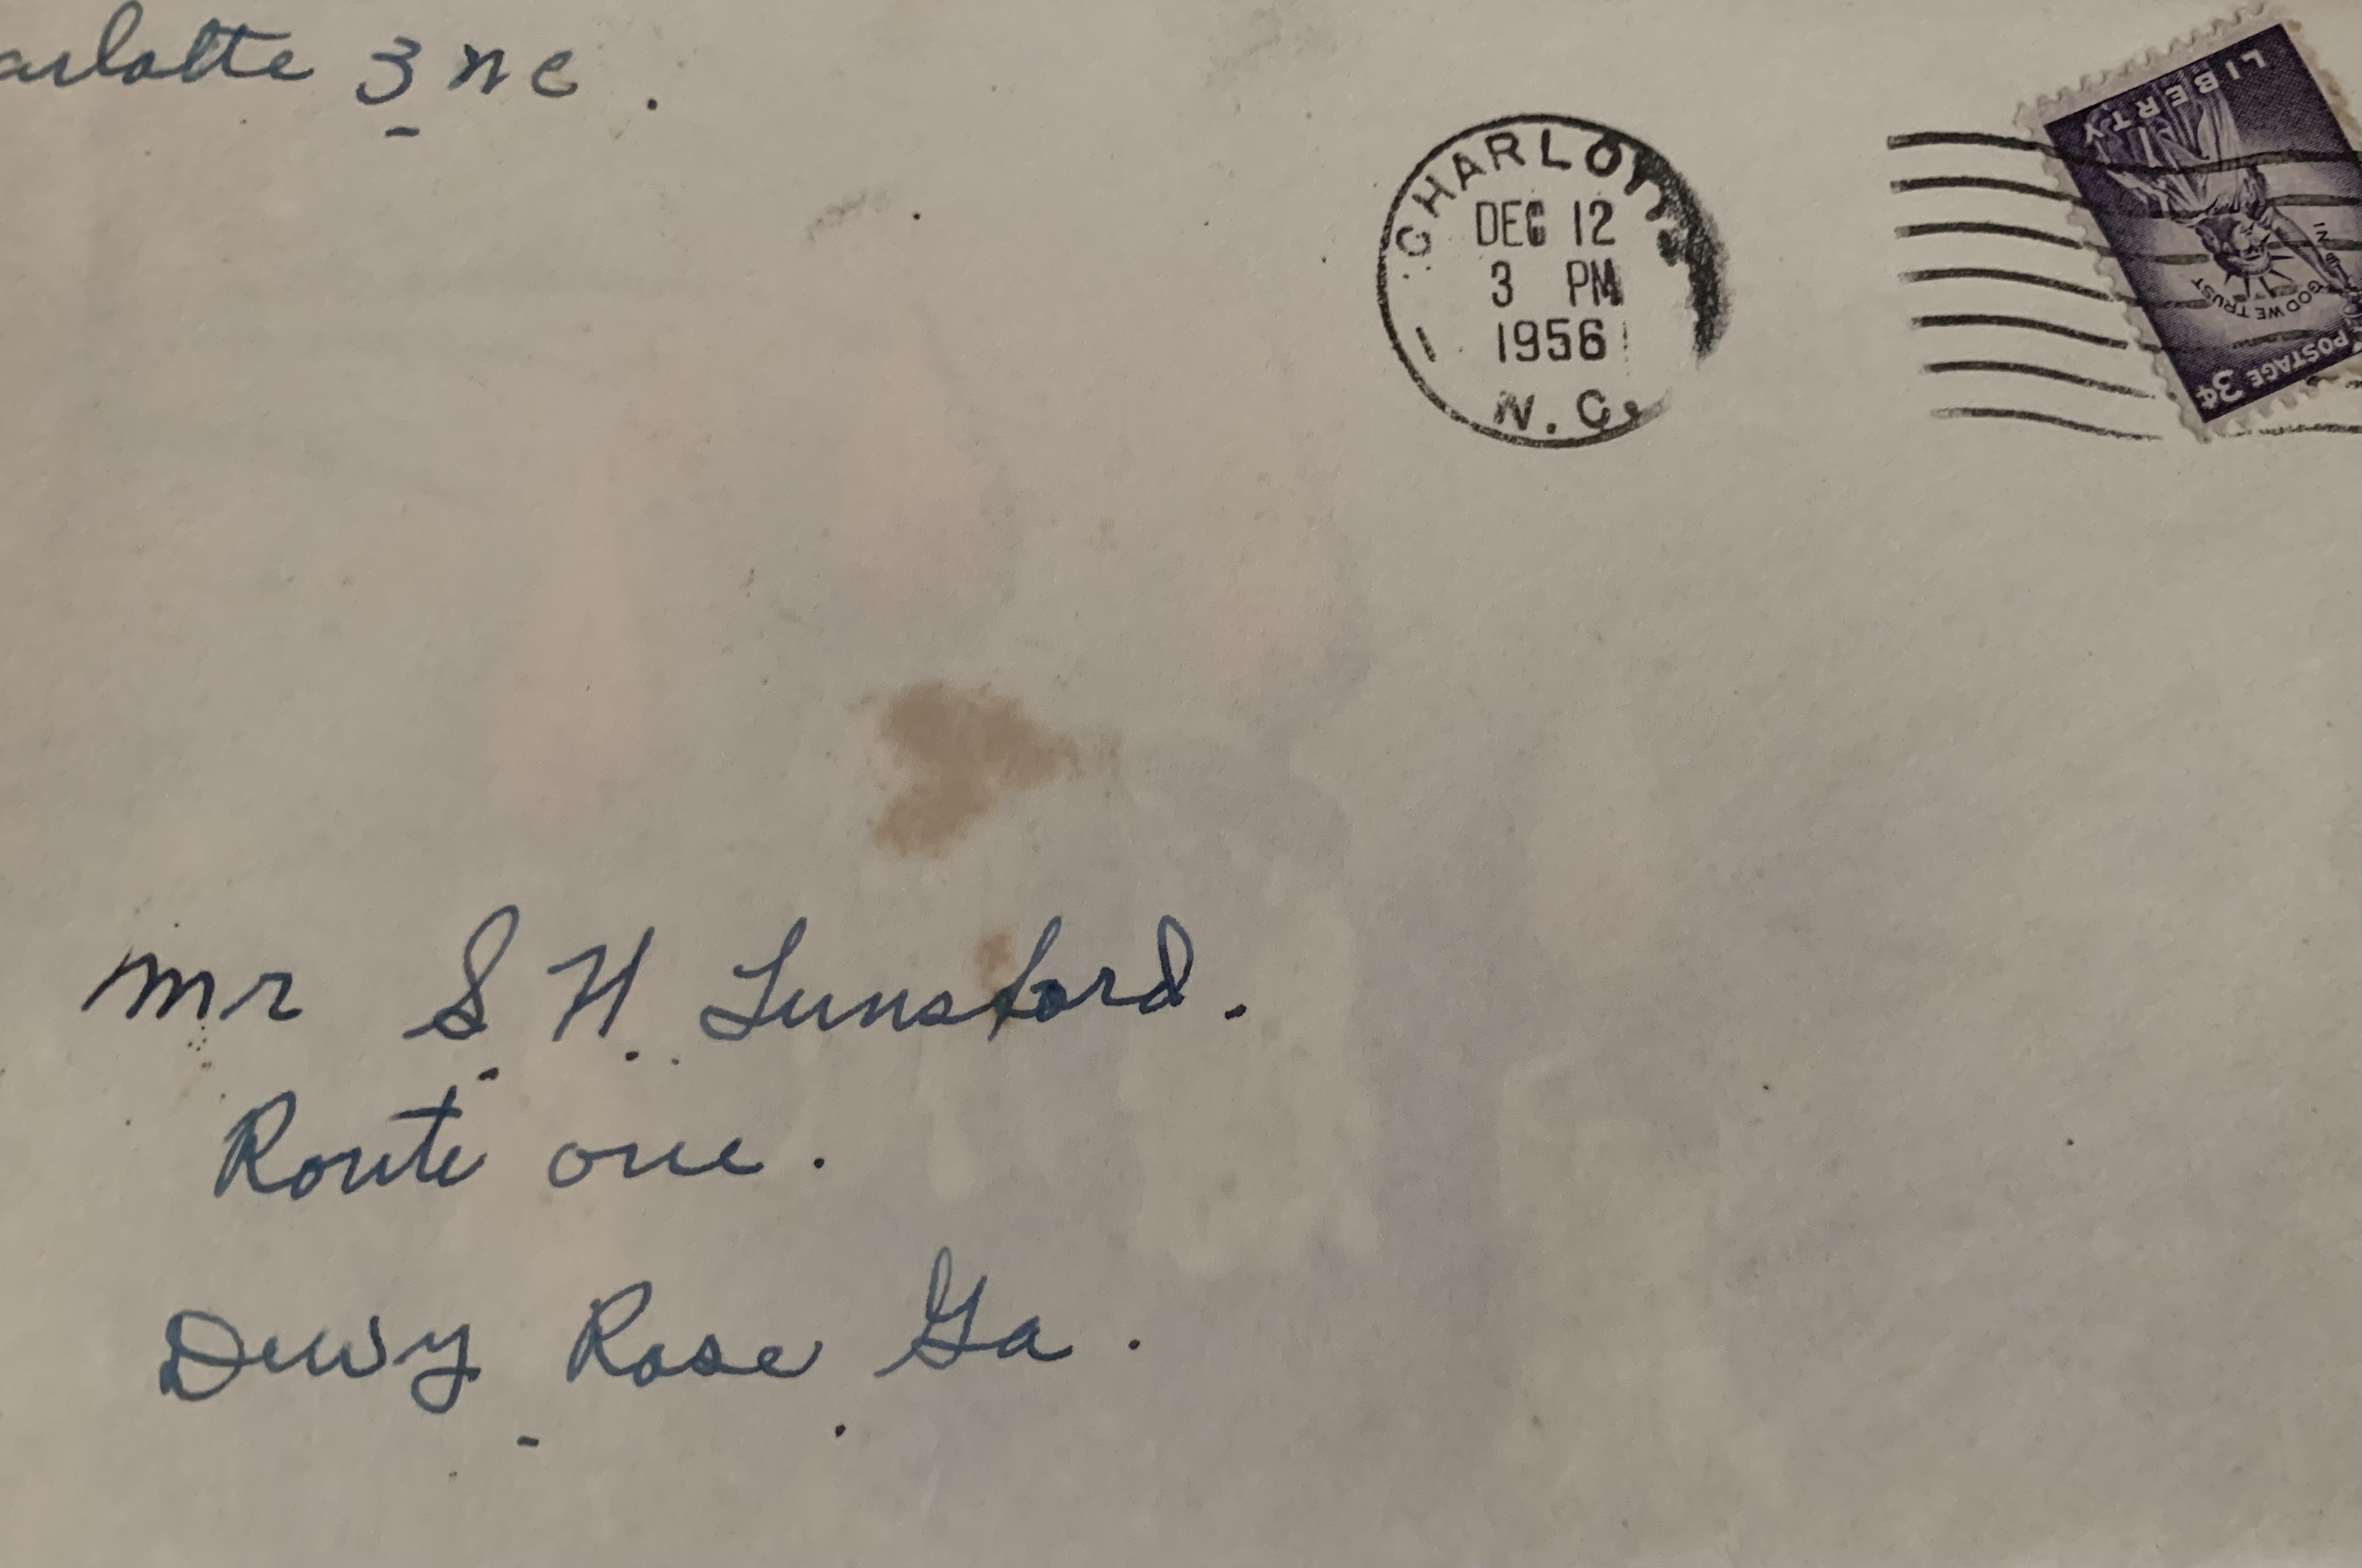 arlotte 3 n c .
CHARLOTTE
DEC 12
3 PM
1956
N. C.
LIBERTY
IN GOD WE TRUST
POSTAGE 3¢
mr S. H. Lunsford.
Route one .
Dewy Rose Ga .